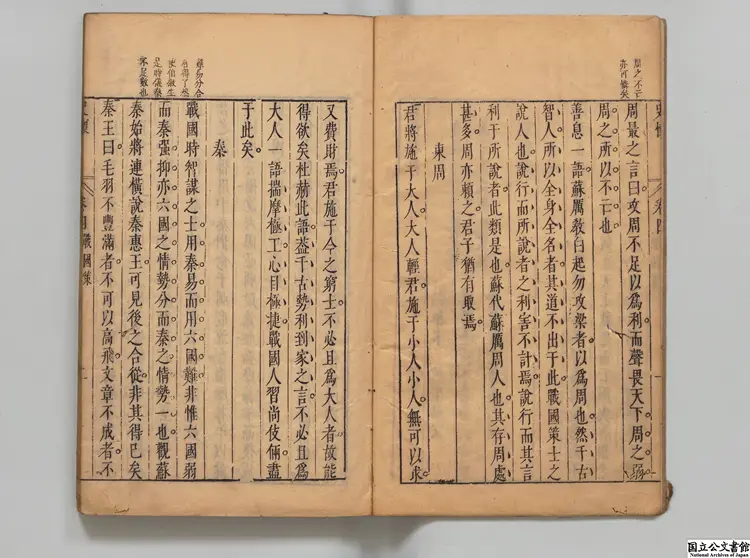 周之不亡
亦可矣
史懷 卷四
周最之言曰攻周不足以爲利而聲畏天下周之弱
周之所以不亡也
善息一語蘇厲教白起勿攻梁者以爲周也然千古
智人所以全身全名者其道不出于此戰國策士之
說人也說行而所說者之利害不計焉說行而其言
利于所說者此類是也蘇代蘇厲周人也其存周處
甚多周亦賴之君子猶有取焉
東周
君將施于大人大人輕君施于小人小人無可以求
又費財焉君施于今之窮士不必且爲大人者故能
得欲矣杜赫此語盡千古勢利到家之言不必且爲
大人一語揣摩極工心目極捷戰國人習尚伎倆盡
于此矣
秦
難易分合
看得了然
使伯敬生
是時儀秦
不足數也
戰國時智謀之士用秦易而用六國難非惟六國弱
而秦強抑亦六國之情勢分而秦之情勢一也觀蘇
秦始將連橫說秦惠王可見後之合從非其得已矣
秦王曰毛羽不豐滿者不可以高飛文章不成者不
史懷 卷四 戰國策 一
国立公文書館
National Archives of Japan